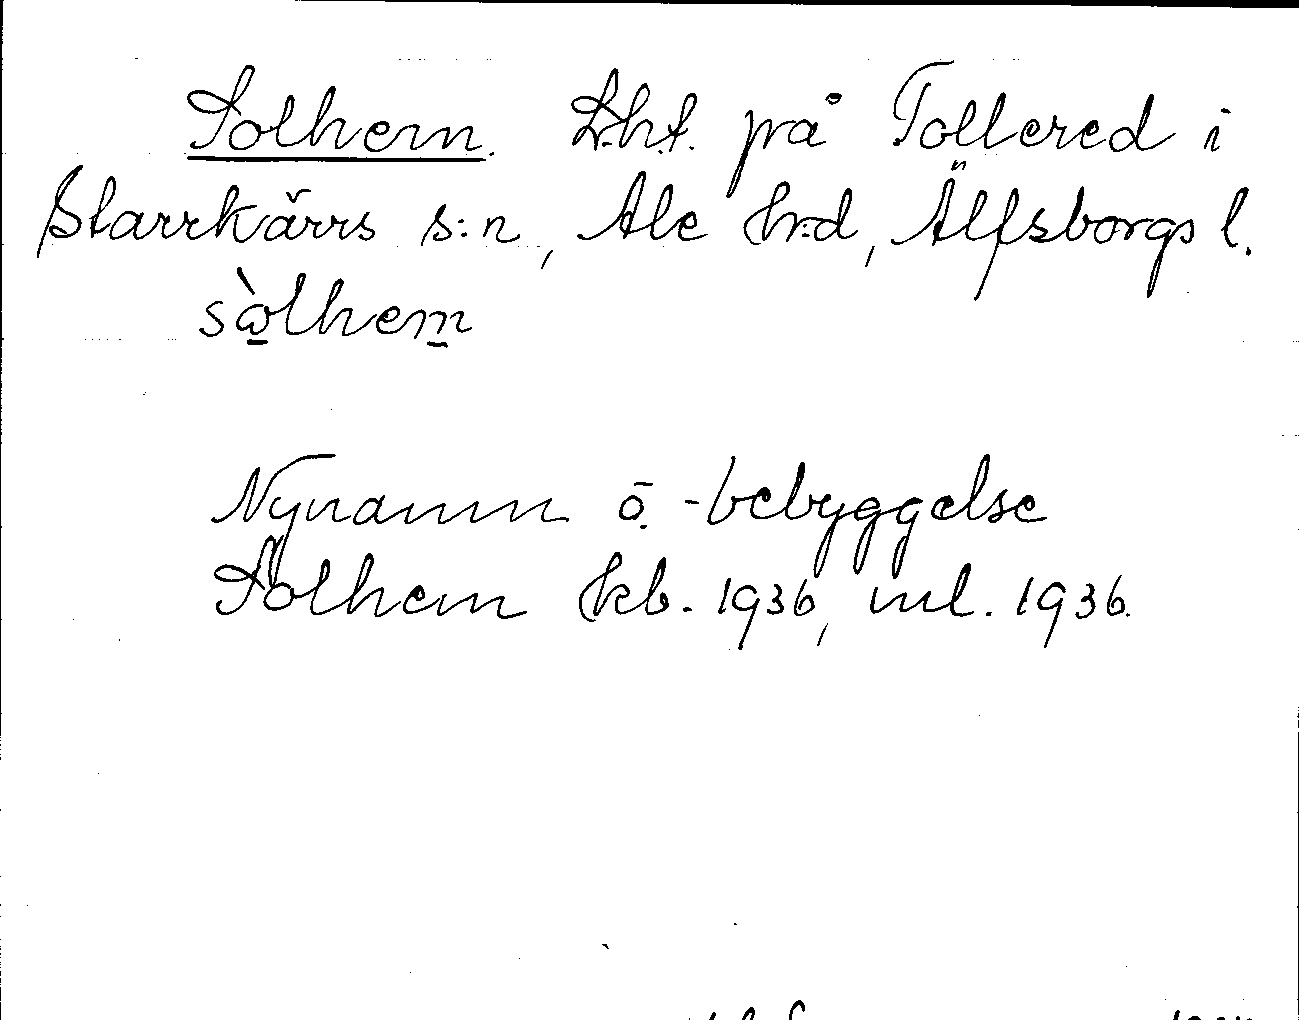 Solhem. Lht. på Tollered i
Starrkärrs s:n, Ale hrd, Älfsborgs l.
sòlhem
Nynamn o. -bebyggelse
Solhem kb. 1936, ml. 1936.